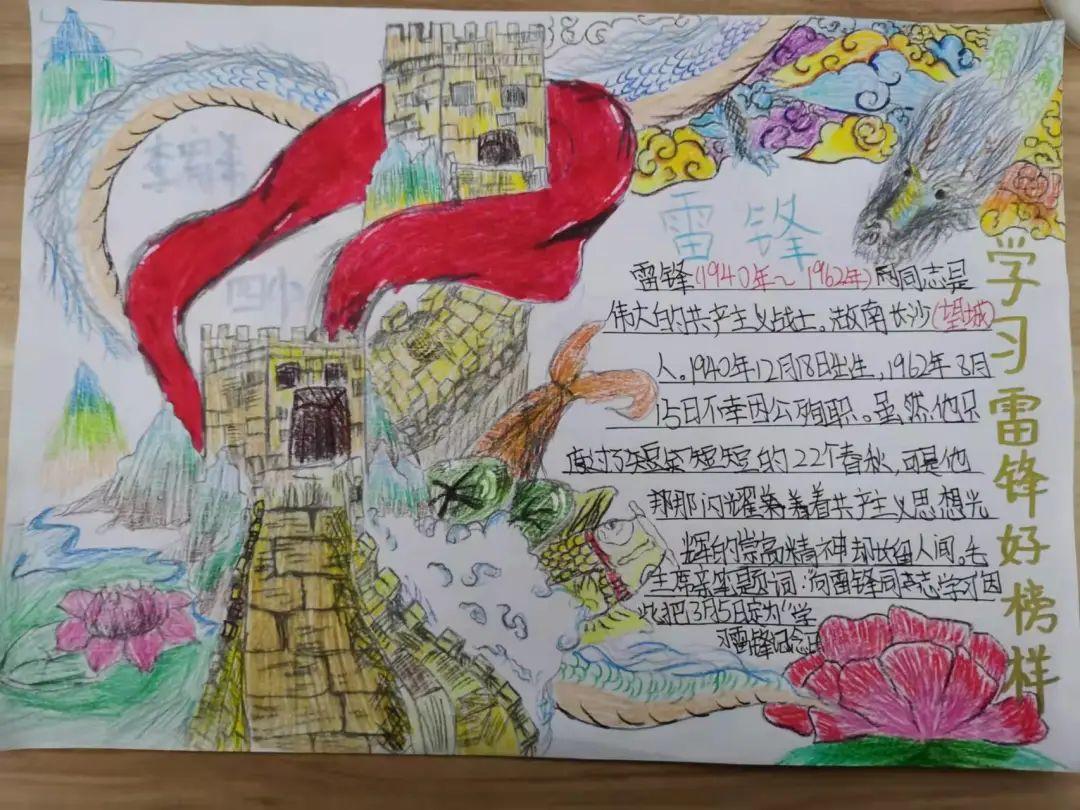 雷锋
雷锋(1940年～1962年)同志是
伟大的共产主义战士。湖南长沙(望城)
人。1940年12月18日出生,1962年8月
15日不幸因公殉职。虽然他只
度过了短短的22个春秋,可是他
那闪耀着共产主义思想光
辉的崇高精神却长留人间。毛
主席亲笔题词:向雷锋同志学习因
此把3月5日定为"学
习雷锋纪念日
学习雷锋好榜样